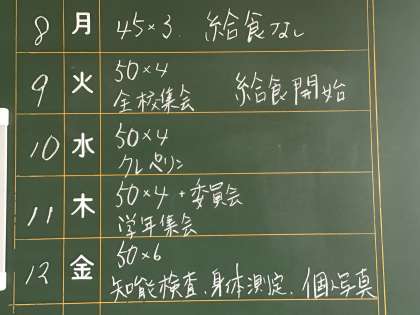 8 月 45×3. 給食なし
9 火 50×4
全校集会 給食開始
10 水 50×4
クレペリン
11 木 50×4 + 委員会
学年集会
12 金 50×6
知能検査、身体測定、個人写真